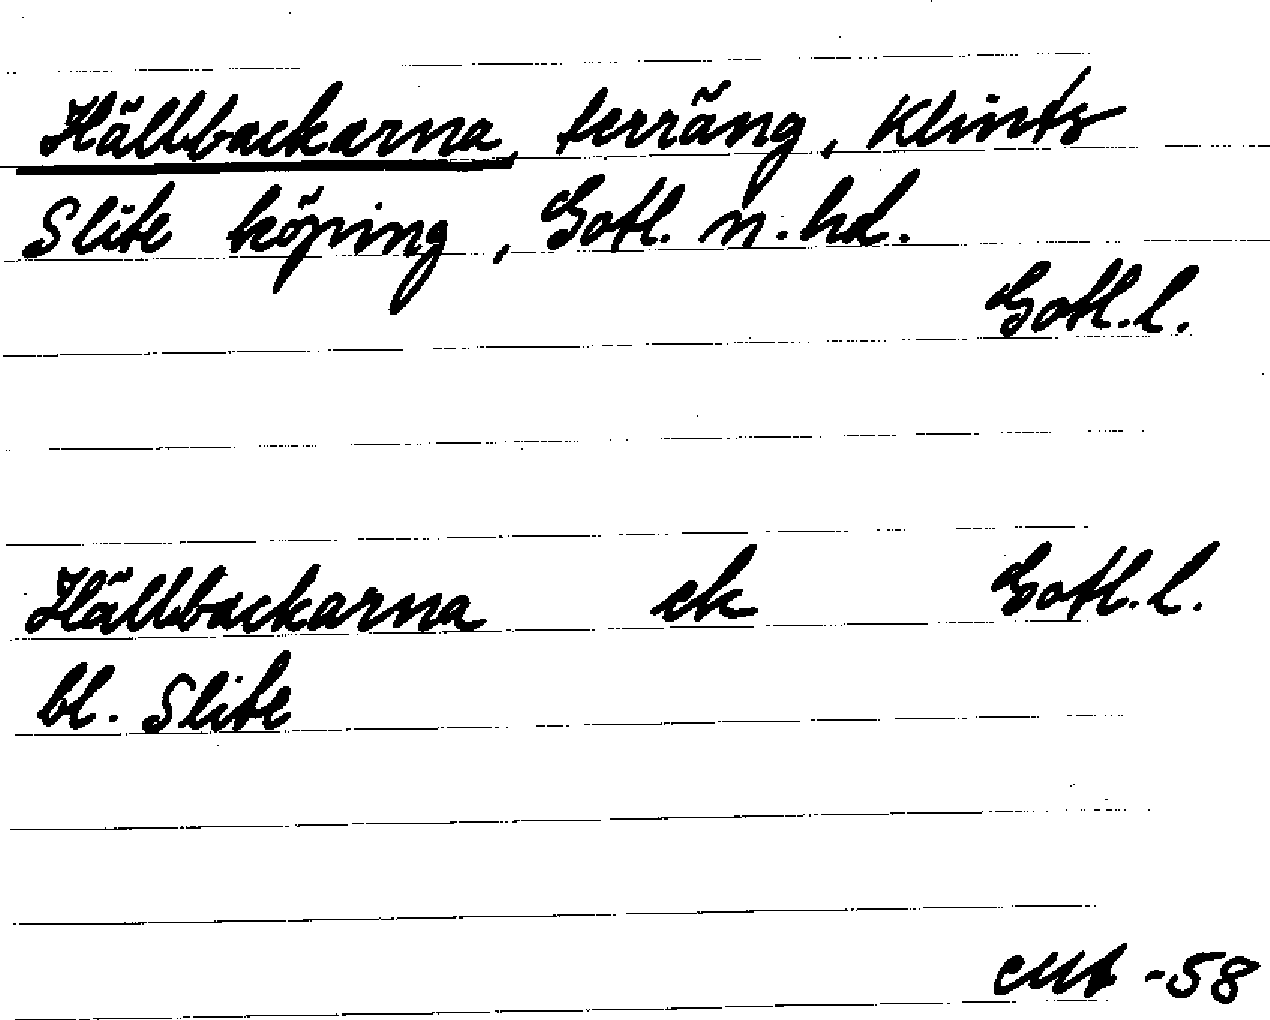 Hällbackarna, terräng, Klints
Slite köping, Gotl. n. hd.
Gotl. l.
Hällbackarna ek Gotl. l.
bl. Slite
-58